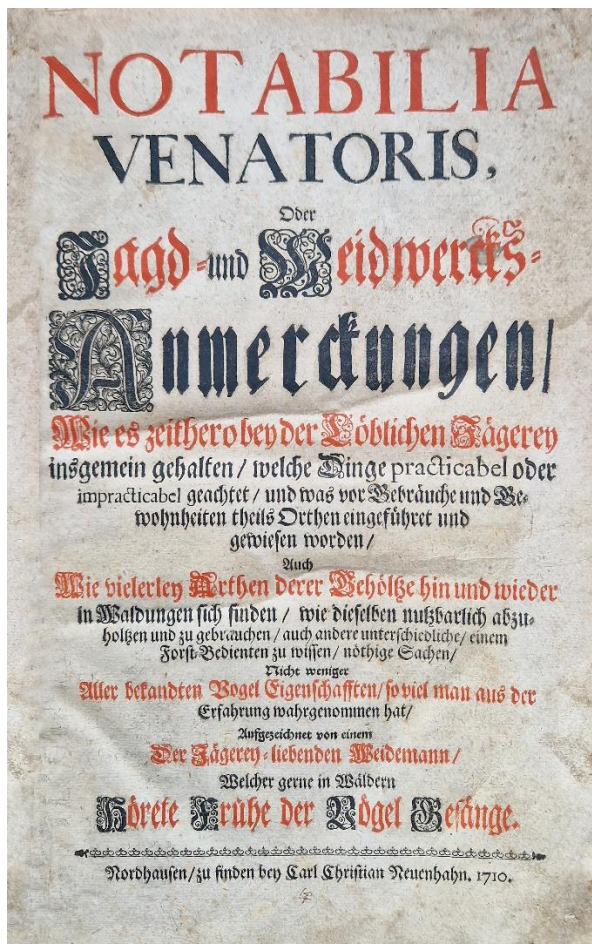 NOTABILIA
VENATORIS,
Oder
Jagd-und Weidwercks-
Anmerckungen/
Wie es zeithero bey der Löblichen Jägerey
insgemein gehalten/ welche Dinge practicabel oder
impracticabel geachtet/ und was vor Gebräuche und Ge-
wohnheiten theils Orthen eingeführet und
gewiesen worden/
Auch
Wie vielerley Arthen derer Gehöltze hin und wieder
in Waldungen sich finden/ wie dieselben nutzbarlich abzu-
holtzen und zu gebrauchen/ auch andere unterschiedliche/ einem
Forst-Bedienten zu wissen/ nöthige Sachen/
Nicht weniger
Aller bekandten Vogel Eigenschafften/ so viel man aus der
Erfahrung wahrgenommen hat/
Aufgezeichnet von einem
Der Jägerey-liebenden Weidemann/
Welcher gerne in Wäldern
Hörete Frühe der Vögel Gesänge.
Nordhausen/ zu finden bey Carl Christian Neuenhahn. 1710.